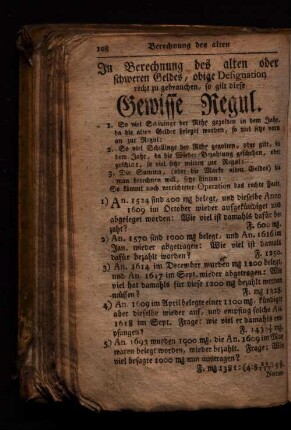 108 Berechnung des alten
In Berechnung des alten oder
schweren Geldes, obige Designation
recht zu gebrauchen, so gilt diese
Gewisse Regul.
1. So viel Schillinge der Rthr gegolten in dem Jahr,
da die alten Gelder belegt worden, so viel setze vorn
an zur Regul:
2. So viel Schillinge der Rthr gegolten, oder gilt, in
dem Jahr, da die Wieder-Bezahlung geschehen, oder
geschicht, so viel setze mitten zur Regul:
3. Die Summa, (oder die Marke alten Geldes) die
man berechnen will, setze hinten:
So kommt nach verrichteter Operation das rechte Facit.
1) An. 1524 sind 400 mg belegt, und dieselbe Anno
1609 im October wieder aufgekündiget und
abgeleget worden: Wie viel ist damahls dafür be-
zahlt? F. 600 mg.
2) An. 1570 sind 1000 mg belegt, und An. 1616 im
Jan. wieder abgetragen: Wie viel ist damahls
dafür bezahlt worden? F. 1250
3) An. 1614 im December wurden mg 1200 belegt,
und An. 1647 im Sept. wieder abgetragen: Wie
viel hat damahls für diese 1200 mg bezahlt werden
müssen? F. mg 1328.
4) An. 1609 im April belegte einer 1100 mg, kündigte
aber dieselbe wieder auf, und empfing solche An.
1618 im Sept. Frage: wie viel er damahls em-
pfangen?
5) An. 1693 wurden 1900 mg, die An. 1609 im May
waren belegt worden, wieder bezahlt. Frage: Wie
viel besagte 1000 mg nun austragen?